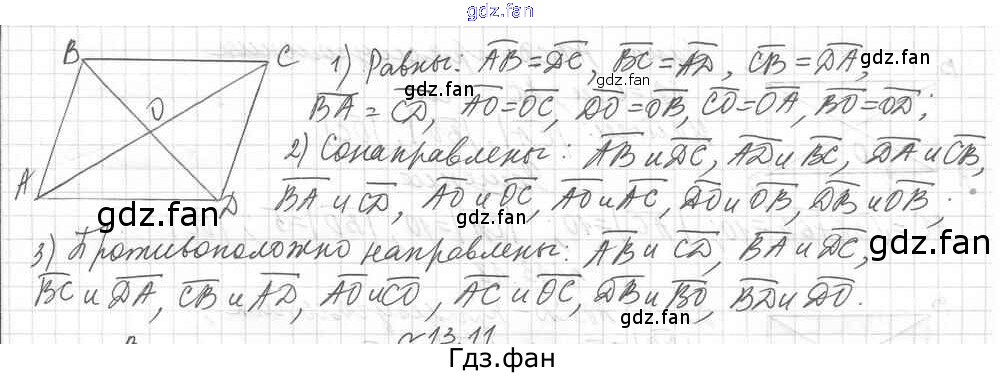 gdz.fan
B C 1) Равны: AB = DC, BC = AD, CB = DA,
gdz.fan
O BA = CD, AO = OC, DO = OB, CO = OA, BO = OD;
2) Сонаправлены: AB и DC, AD и BC, DA и CB,
A D BA и CD, AO и OC, AO и AC, DO и OB, DB и OB;
gdz.fan gdz.fan gdz.fan
3) Противоположно направлены: AB и CD, BA и DC,
BC и DA, CB и AD, AO и CO, AC и OC, DB и BO, BD и DO.
gdz.fan gdz.fan
13.11
Гдз.фан